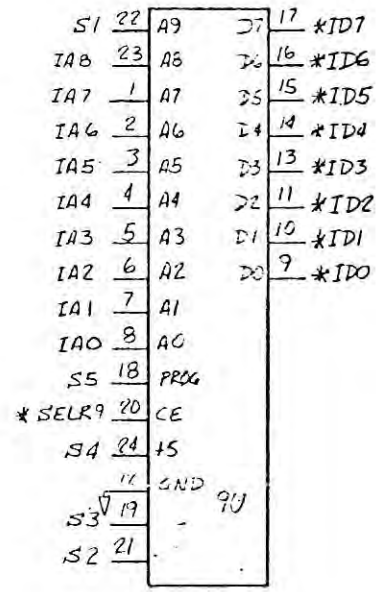 S1 22 A9 D7 17 *ID7
IA8 23 A8 D6 16 *ID6
IA7 1 A7 D5 15 *ID5
IA6 2 A6 D4 14 *ID4
IA5 3 A5 D3 13 *ID3
IA4 4 A4 D2 11 *ID2
IA3 5 A3 D1 10 *ID1
IA2 6 A2 D0 9 *ID0
IA1 7 A1
IA0 8 A0
S5 18 PROG
*SELR9 20 CE
S4 24 +5
GND
S3 19
S2 21